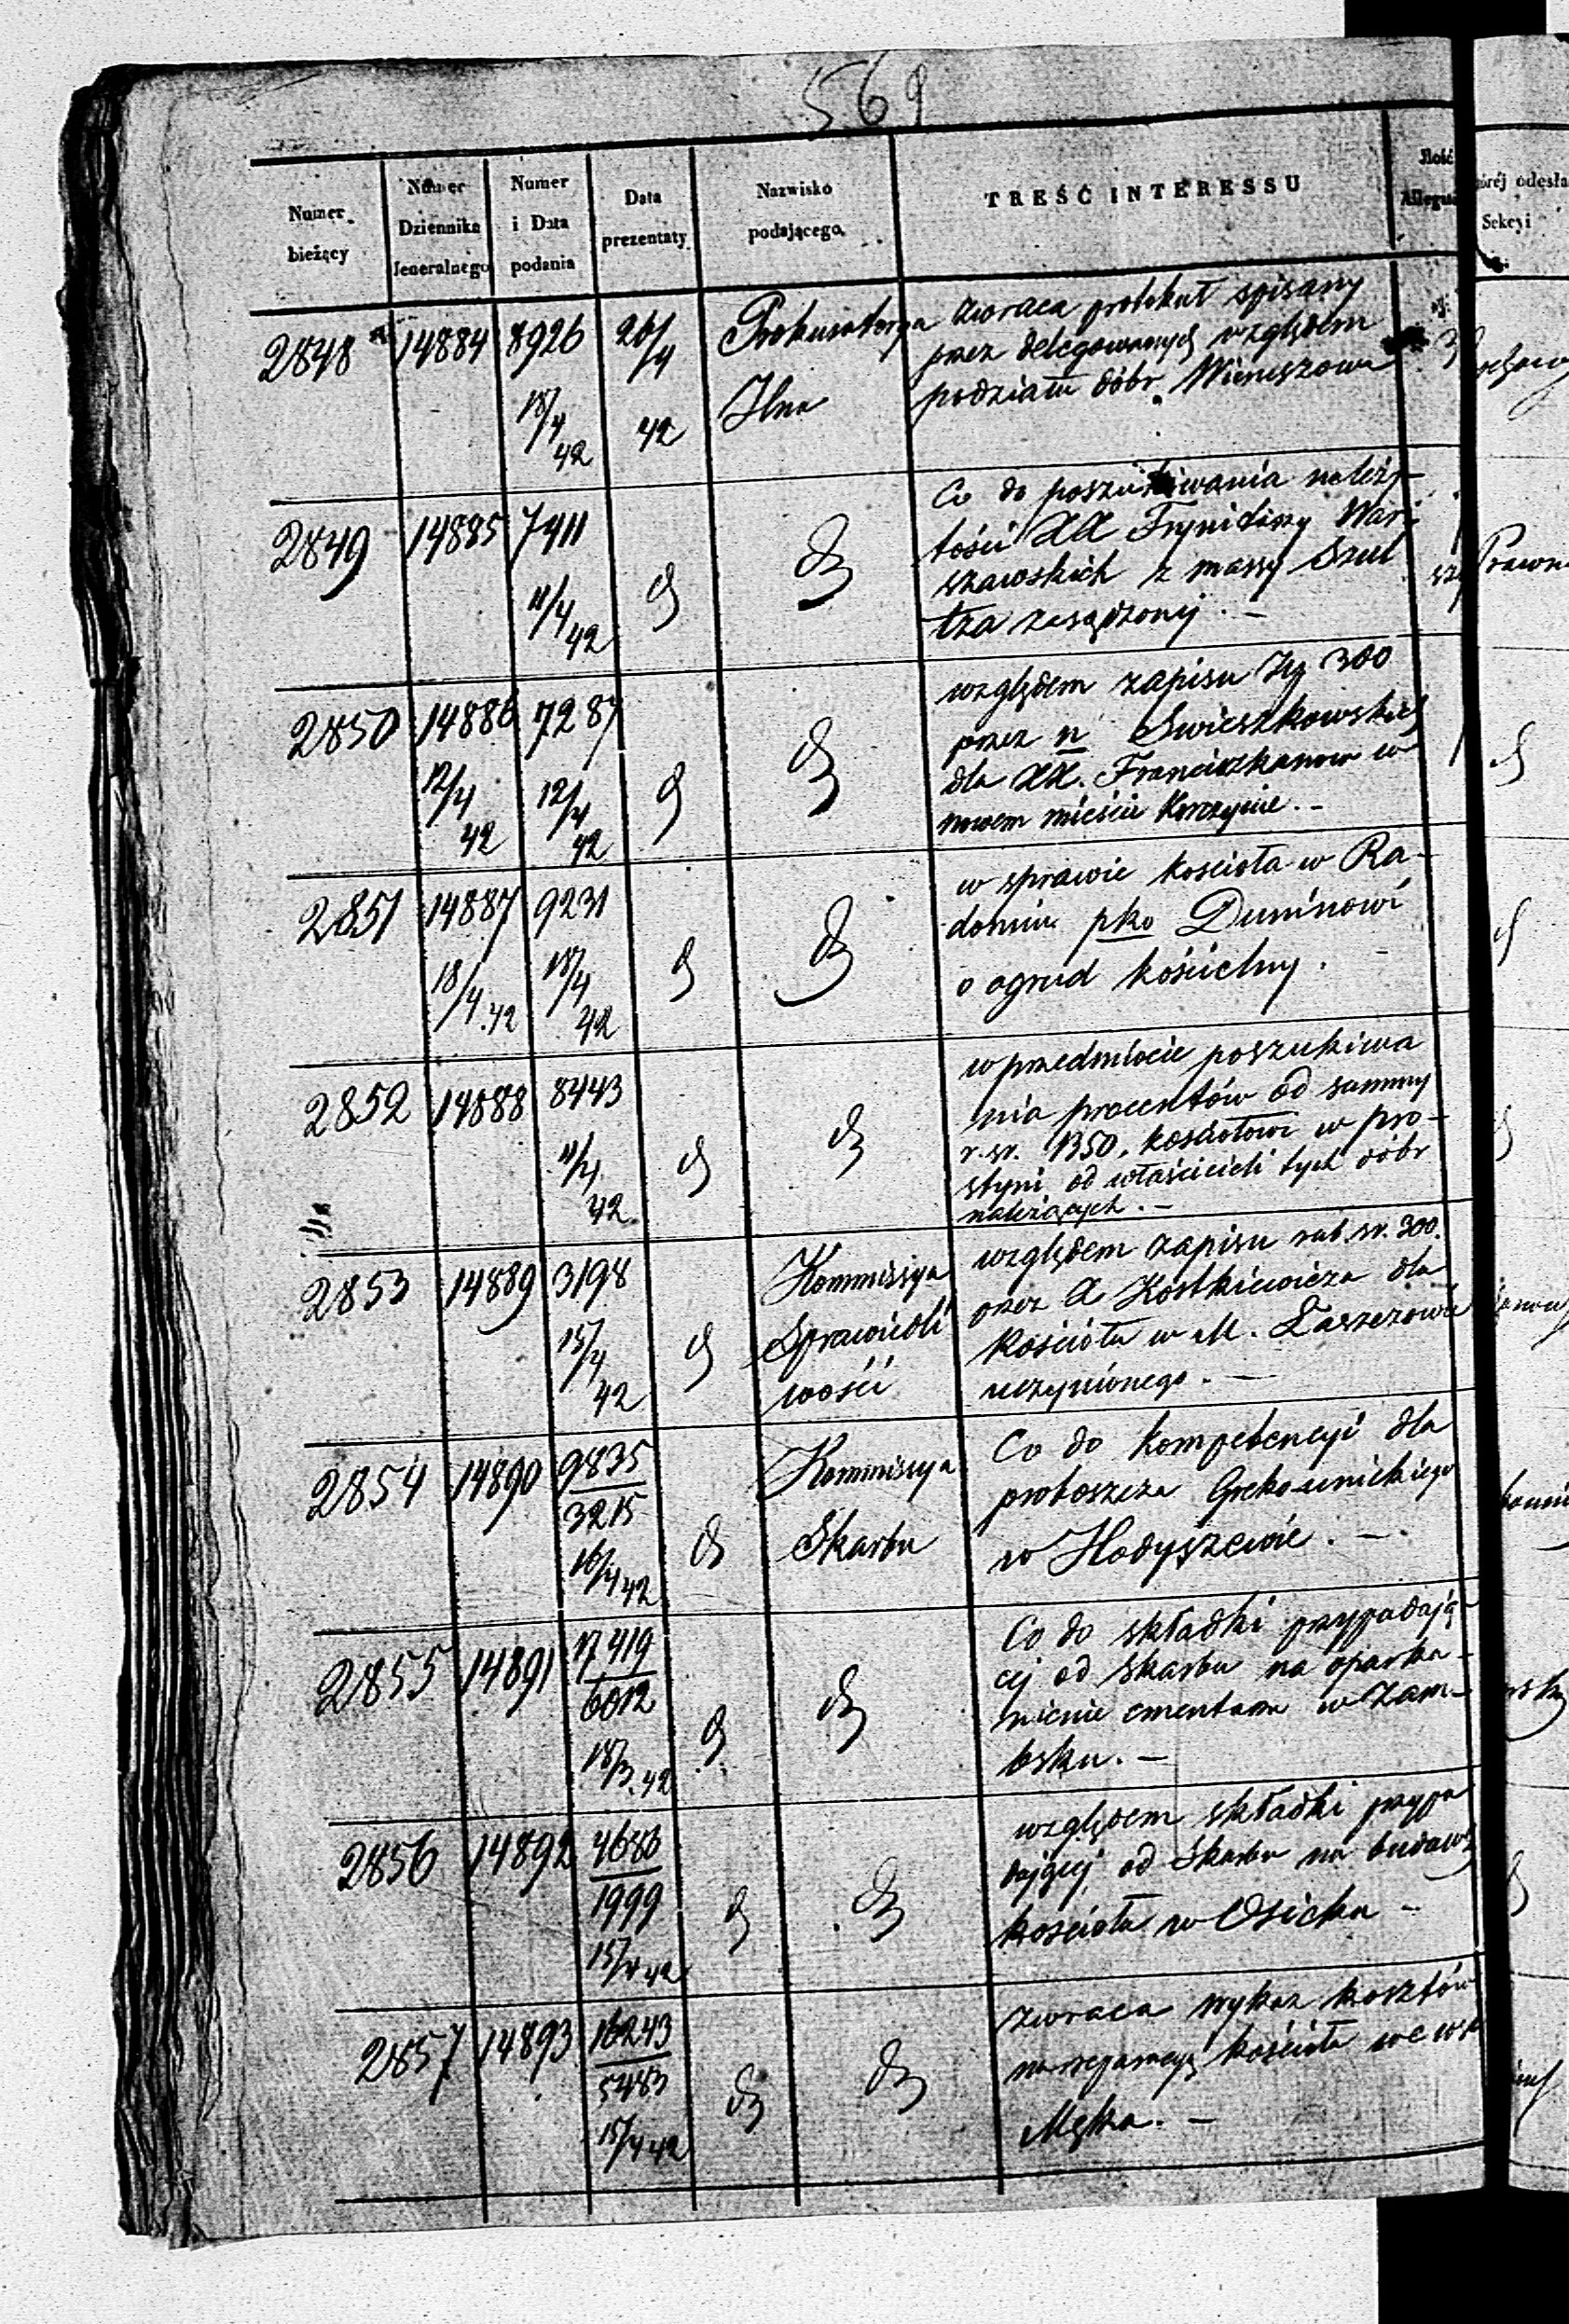 569
Numer bieżący
Numer Dziennika Jeneralnego
Numer i Data podania
Data prezentaty
Nazwisko podającego
TREŚĆ INTERESSU
Ilość
odesła
Sekcyi
2848 14884 8926 18/4 42 26/4 42 Prokuratorya Jlna
zwraca protokuł spisany
przez delegowanych względem
podziału dóbr Wieruszowa
2849 14885 7411 11/4 42
Co do poszukiwania należy-
tości XX Trynitarzy War-
szawskich z massy Szul
tza zasądzonej. —
Prawn
2850 14886 12/4 42 7287 12/4 42
względem zapisu Złp 300
przez n Swieszkowskich
dla XX. Franciszkanow w
nowem mieście Korczynie. -
2851 14887 18/4.42 9231 18/4 42
w sprawie kościoła w Ra-
domiu pko Duninowi
o ogrud kościelny.
2852 14888 8443 11/4 42
w przedmiocie poszukiwa
nia procentów od summy
r. sr. 1350. kościołowi w pro-
styni od właścicieli tych dóbr
należących. —
2853 14889 3198 15/4 42 Kommissya Sprawiedli wości
względem zapisu rub. sr. 300.
przez X Kostkiewicza dla
kościoła w M. Łaszczowie
uczynionego. —
2854 14890 9835 3215 16/4 42 Kommissya Skarbu
Co do kompetencyi dla
proboszcza Greko-unickiego
w Hodyszewie. —
2855 14891 17419 6012 18/3.42
Co do składki przypadają-
cej od skarbu na oparka-
nienie cmentarza w Zam-
bsku. —
2856 14892 4686 1999 15/4 42
względem składki przypa
dającej od Skarbu na budowę
kościoła w Osieku —
2857 14893 16243 5483 15/4 42
zwraca wykaz kosztów
na reparacyę kościoła we wsi
Męka. —